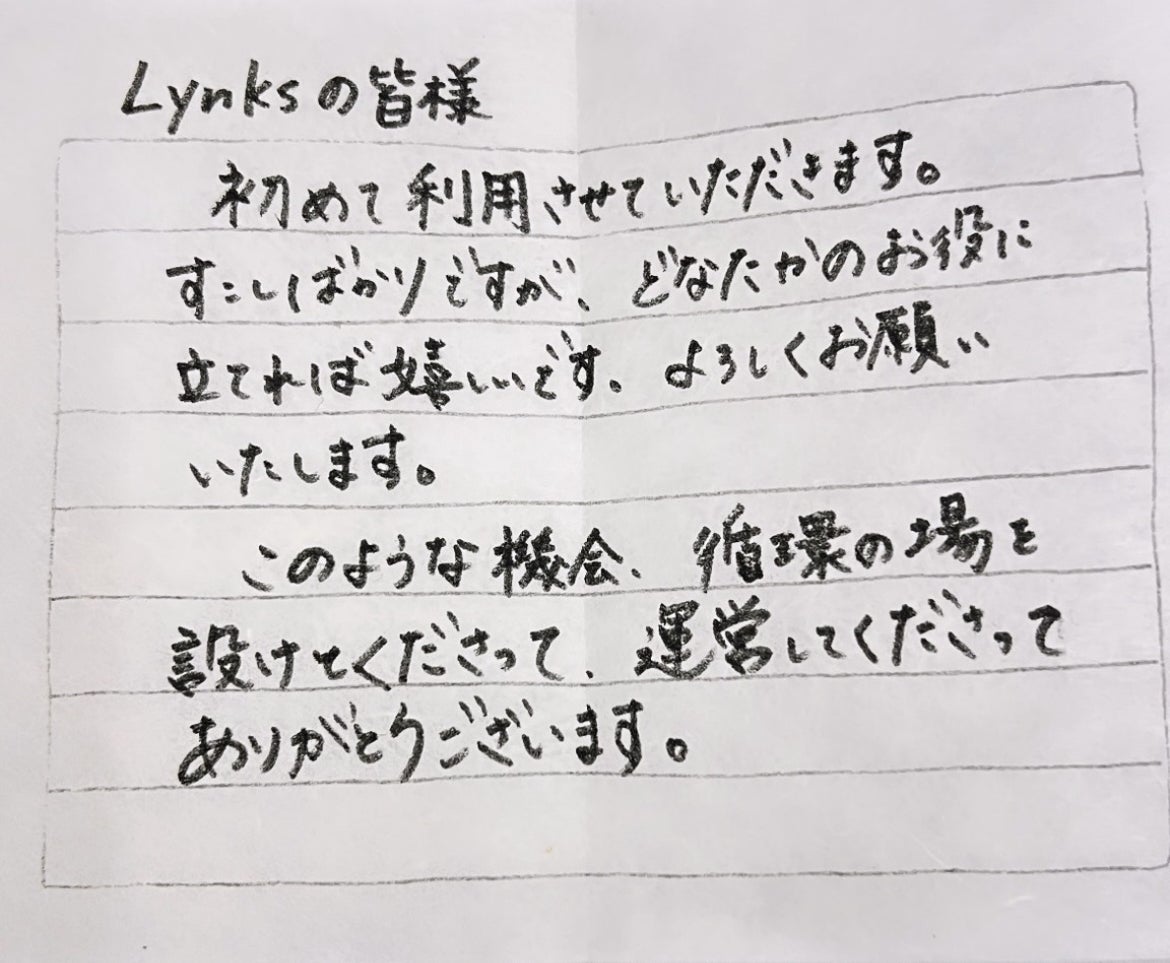 Lynksの皆様
初めて利用させていただきます。
すこしばかりですが、どなたかのお役に
立てれば嬉しいです、よろしくお願い
いたします。
このような機会、循環の場を
設けてくださって、運営してくださって
ありがとうございます。